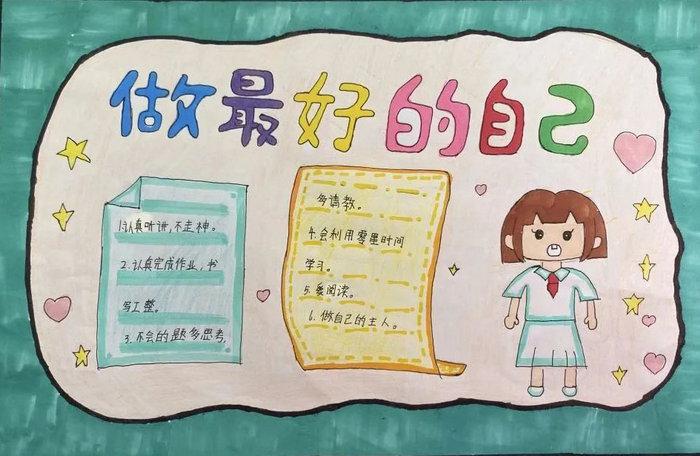 做最好的自己
1.认真听讲,不走神。
2.认真完成作业,书
写工整。
3.不会的题多思考,
多请教。
4.会利用零星时间
学习。
5.爱阅读。
6.做自己的主人。